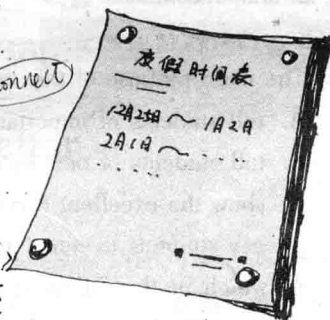 connect
度假时间表
12月25日～1月2日
2月1日～
.....